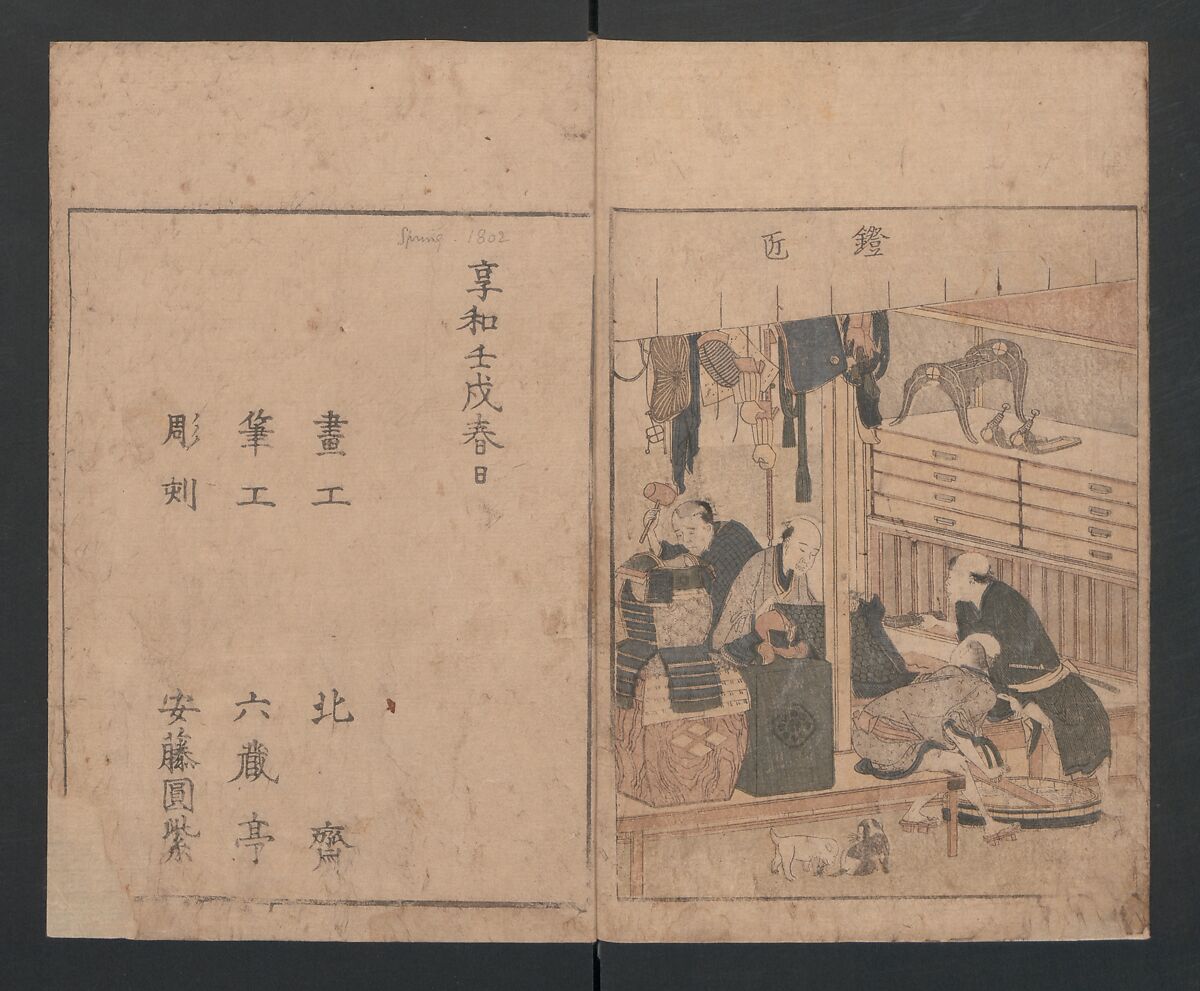 鐙匠
Spring. 1802
享和壬戌春日
畫工 北齋
筆工 六藏亭
彫刻 安藤圓紫